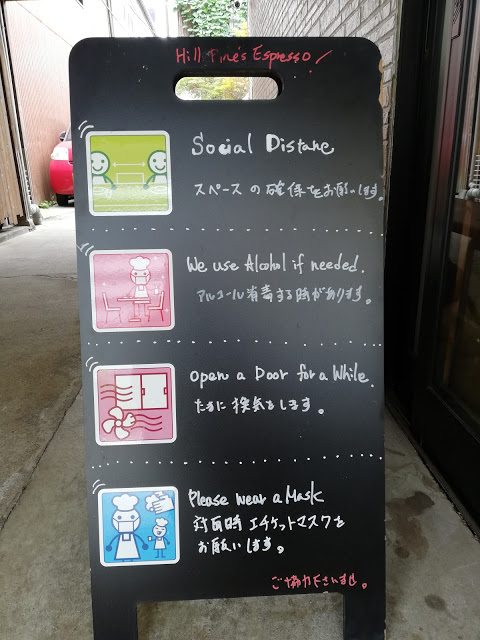 Hill Pine's Espresso
Social Distane
スペースの確保をお願いします。
We use Alcohol if needed.
アルコール消毒する時があります。
Open a Door for a While.
たまに換気をします。
Please wear a Mask
対面時エチケットマスクを
お願いします。
ご協力下さいませ。